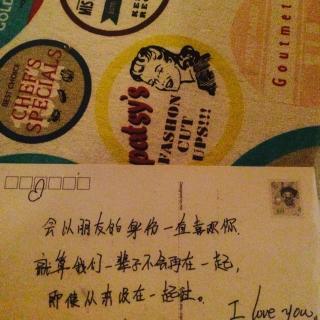 GOLD
BEST CHOICE
CHEF'S
SPECIALS
patsy's
FASHION
CUT
UPS!!!
Gourmet
会以朋友的身份一直喜欢你.
就算我们一辈子不会再在一起,
即使从来没在一起过。
I love you.